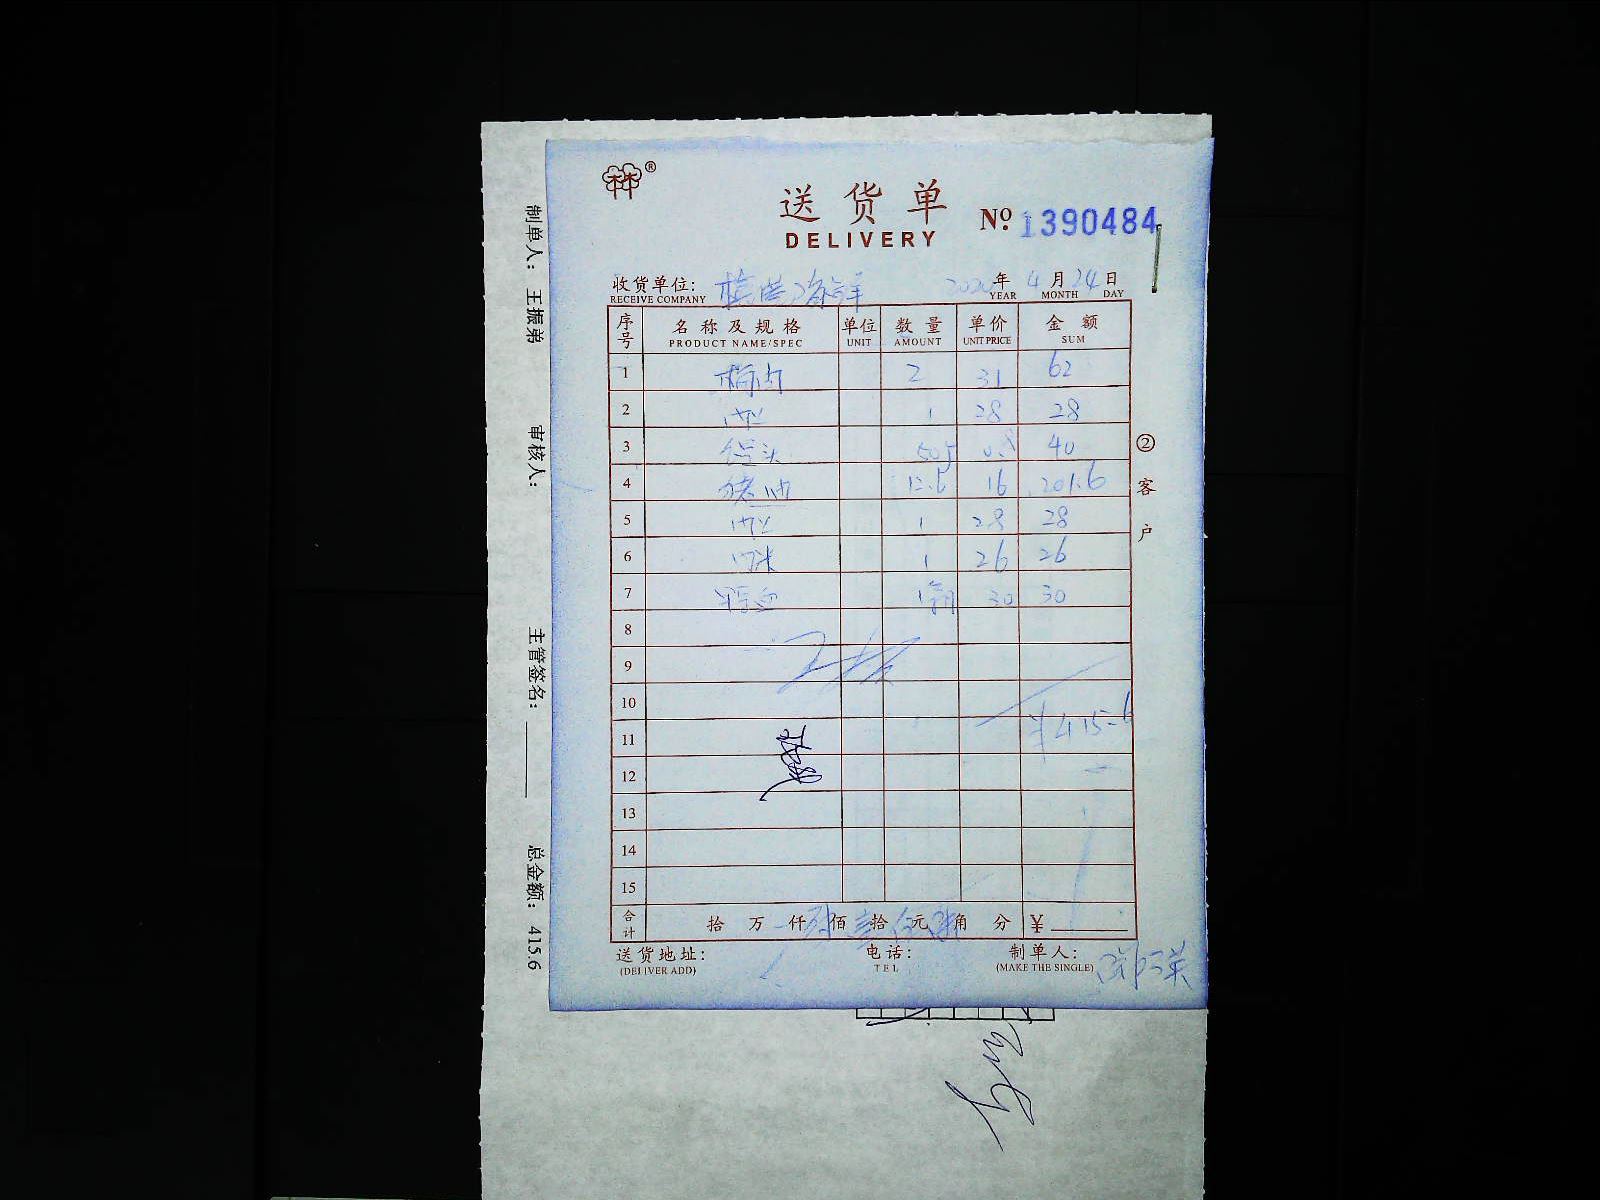 ®
送货单
DELIVERY
№ 1390484
收货单位: 2020年 4月 24日
RECEIVE COMPANY YEAR MONTH DAY
序号 名称及规格 单位 数量 单价 金额
PRODUCT NAME/SPEC UNIT AMOUNT UNIT PRICE SUM
1 梅肉 2 31 62
2 肉丝 1 28 28
3 40
4 猪油 12.6 16 201.6
5 肉丝 1 28 28
6 肉末 1 26 26
7 30 30
8
9
10
11 ¥415.6
12
13
14
15
合计 拾 万 仟 佰 拾 元 角 分 ¥
送货地址: 电话: 制单人:
(DELIVER ADD) TEL (MAKE THE SINGLE)
②客户
制单人: 王振弟 审核人: 主管签名: 总金额: 415.6